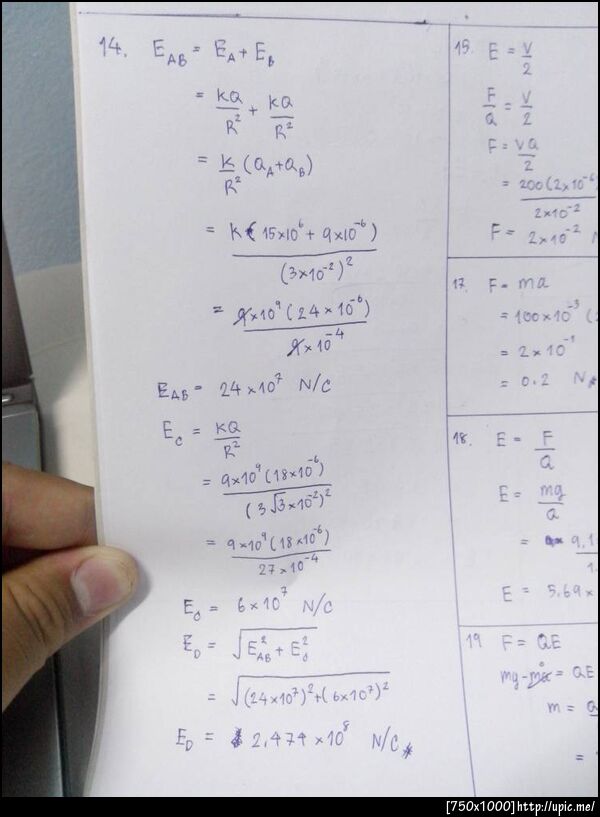 14. E_AB = E_A + E_B
= KQ/R² + KQ/R²
= K/R² (Q_A + Q_B)
= K(15×10⁶ + 9×10⁻⁶)/(3×10⁻²)²
= 9×10⁹(24×10⁻⁶)/9×10⁻⁴
E_AB = 24×10⁷ N/C
E_C = KQ/R²
= 9×10⁹(18×10⁻⁶)/(3√3×10⁻²)²
= 9×10⁹(18×10⁻⁶)/27×10⁻⁴
E_C = 6×10⁷ N/C
E_D = √(E_AB² + E_C²)
= √((24×10⁷)² + (6×10⁷)²)
E_D = 2.474×10⁸ N/C
15. E = V/2
F/Q = V/2
F = VQ/2
= 200(2×10⁻⁶/2×10⁻²
F = 2×10⁻² N
17. F = ma
= 100×10⁻³ (
= 2×10⁻¹
= 0.2 N
18. E = F/Q
E = mg/Q
= 9.1
E = 5.69×
19 F = QE
mg - ma = QE
m =
=
[750x1000]http://upic.me/